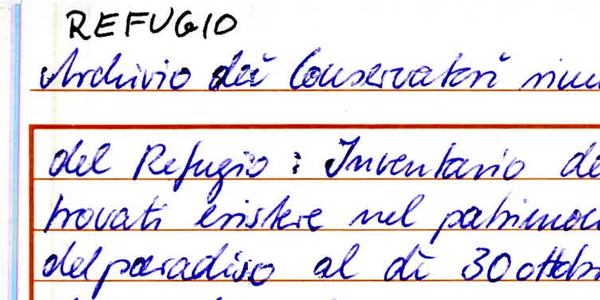 REFUGIO
Archivio dei Conservatori
del Refugio: Inventario
trovati esistere nel
del paradiso al dì 30